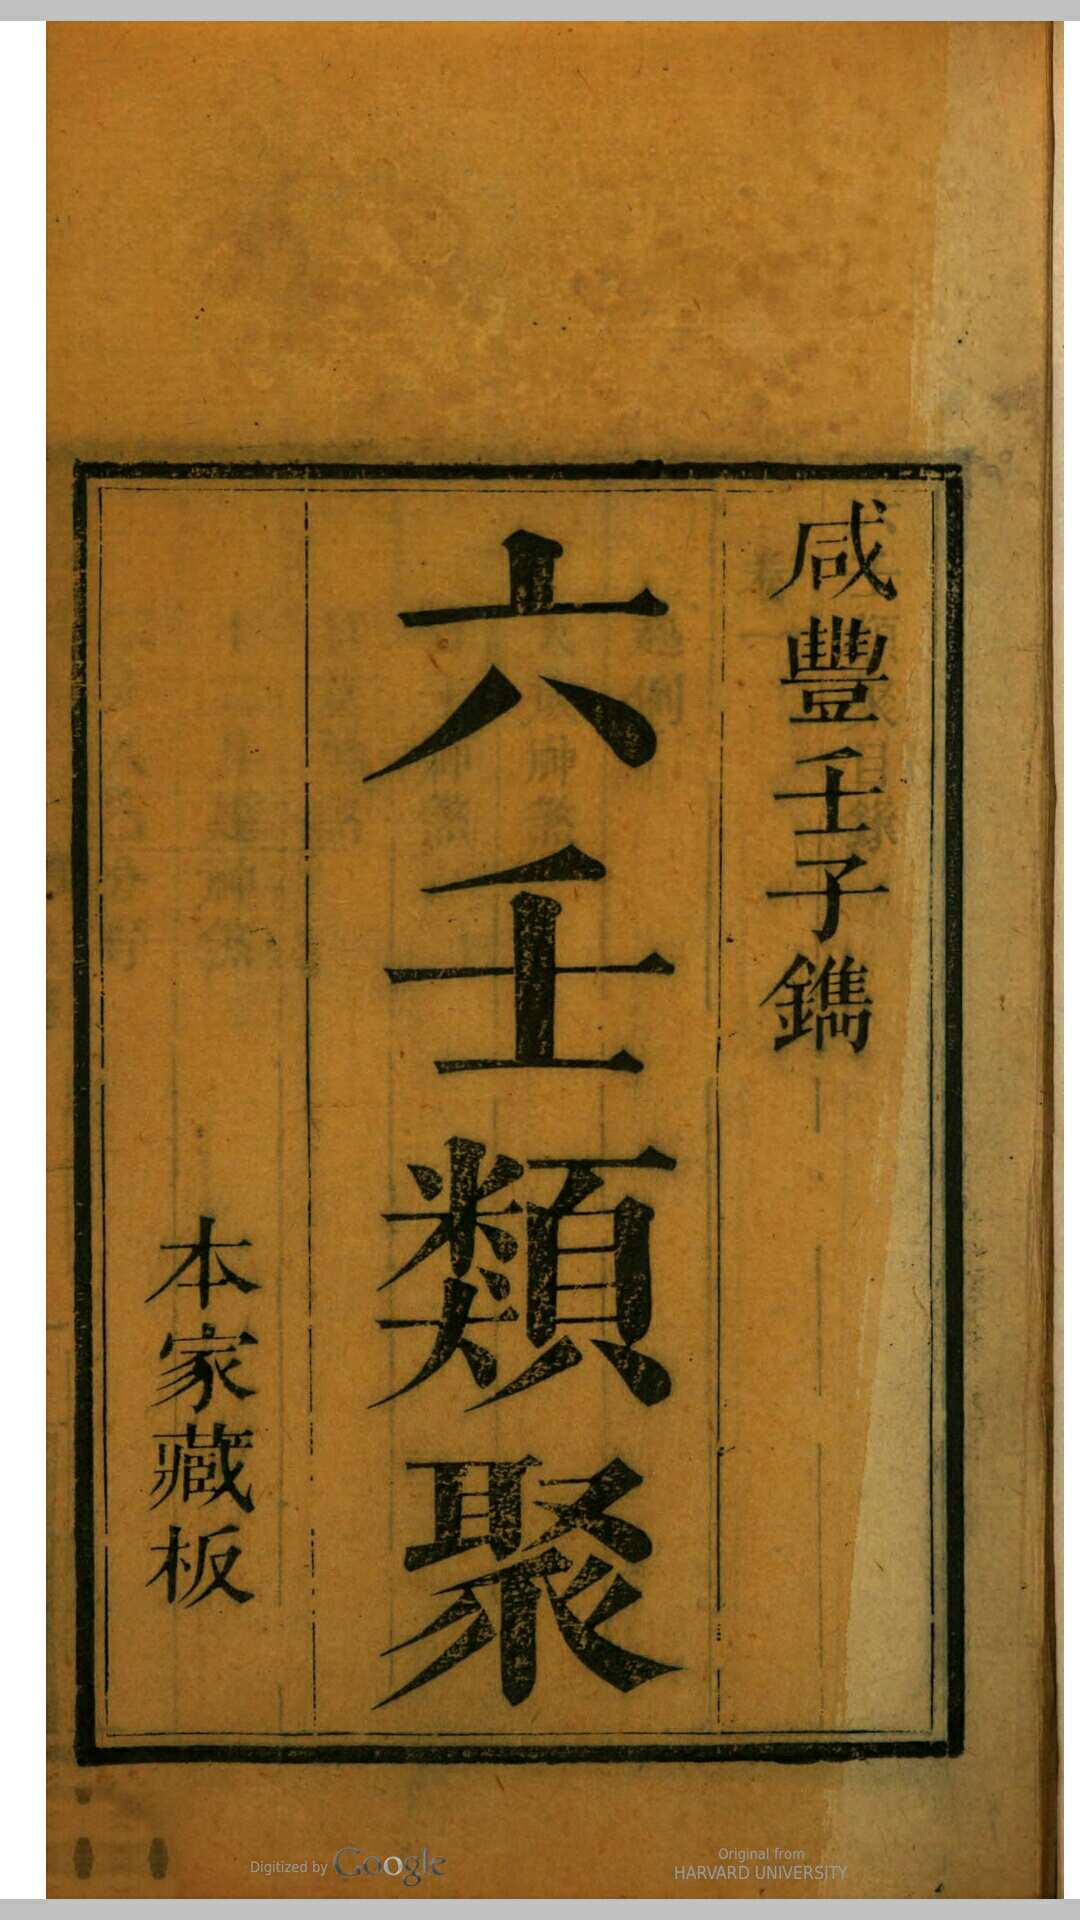 咸豐壬子鐫
六壬類聚
本家藏板
Digitized by Google
Original from
HARVARD UNIVERSITY